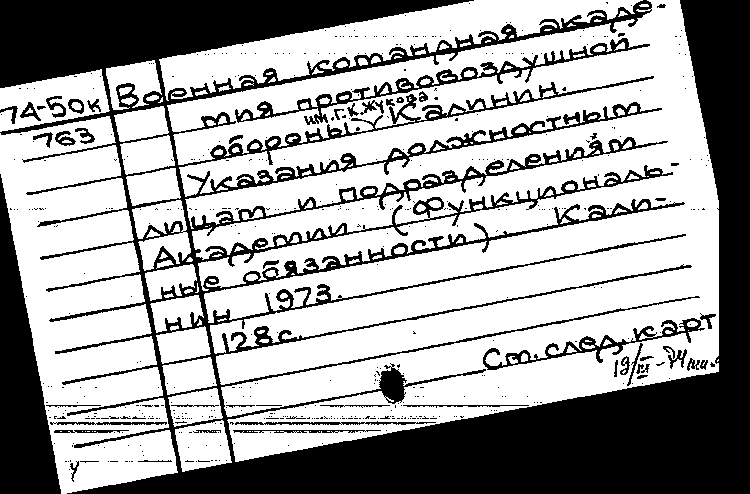 74-50к Военная командная акаде-
763 мия противовоздушной
им. Г.К. Жукова.
обороны. Калинин.
Указания должностным
лицам и подразделениям
Академии. (Функциональ-
ные обязанности). Кали-
нин, 1973.
128 с.
См. след. карт
19/III-74
У